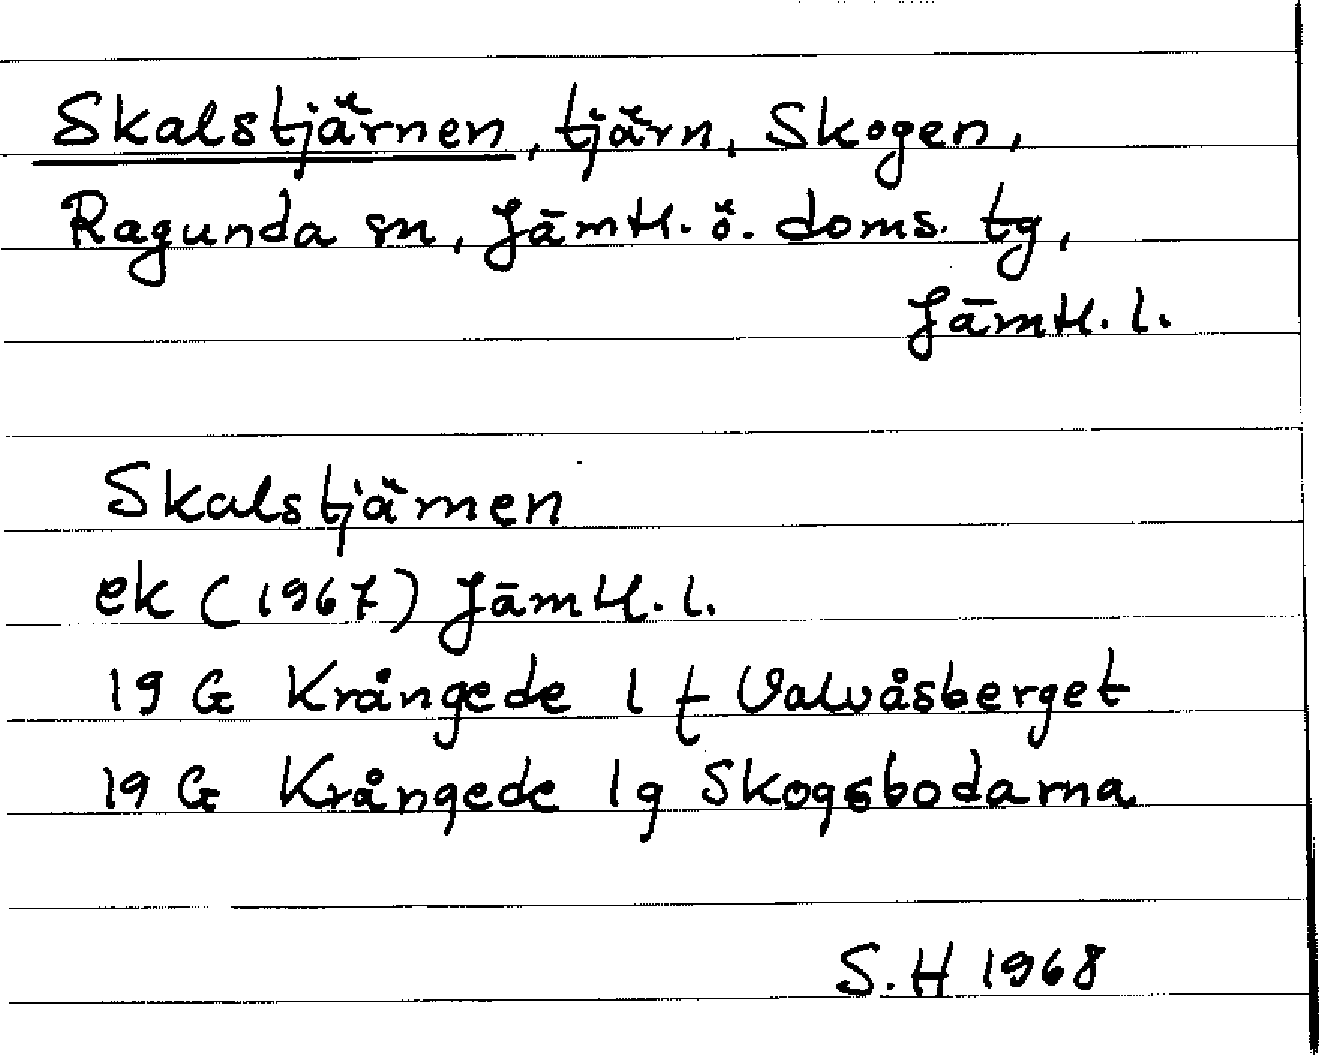 Skalstjärnen, tjärn, Skogen,
Ragunda sn, Jämtl. ö. doms. tg,
Jämtl. l.
Skalstjärnen
ek (1967) Jämtl. l.
19 G Krångede 1 f Valvåsberget
19 G Krångede 1g Skogsbodarna
S.H 1968